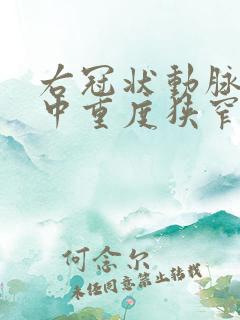 右冠状動脉
中重度狭窄
何念尔
未经同意禁止转载